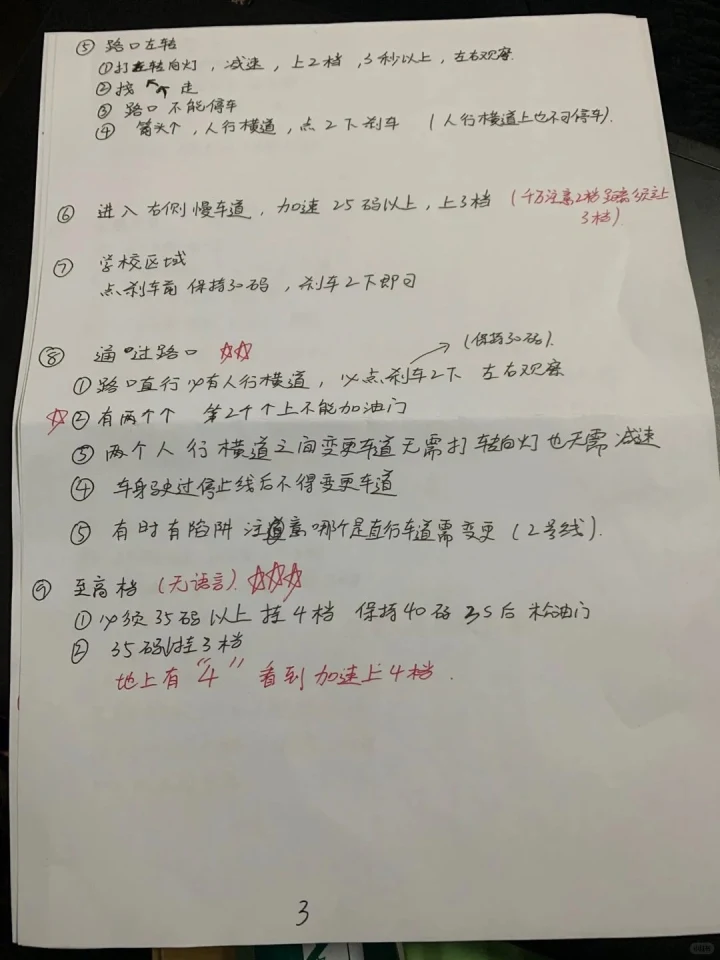 ⑤ 路口左转
①打左转向灯，减速，上2档，3秒以上，左右观察
②找 ↖↗ 走
③ 路口不能停车
④ 箭头个，人行横道，点2下刹车（人行横道上也不可停车）.
⑥ 进入右侧慢车道，加速25码以上，上3档（千万注意2档距离须让3档）.
⑦ 学校区域
点刹车前保持30码，刹车2下即可
⑧ 通过路口 ☆☆
（保持30码）.
① 路口直行必有人行横道，必点刹车2下 左右观察
☆② 有两个个 第2个个上不能加油门
③ 两个人行横道之间变更车道无需打转向灯也无需减速
④ 车身驶过停止线后不得变更车道
⑤ 有时有陷阱 注意哪个是直行车道需变更（2号线）.
⑨ 至高档（无语言）. ☆☆☆
① 必须35码以上挂4档 保持40码 3S后 松油门
② 35码挂3档
地上有“4” 看到加速上4档.
3